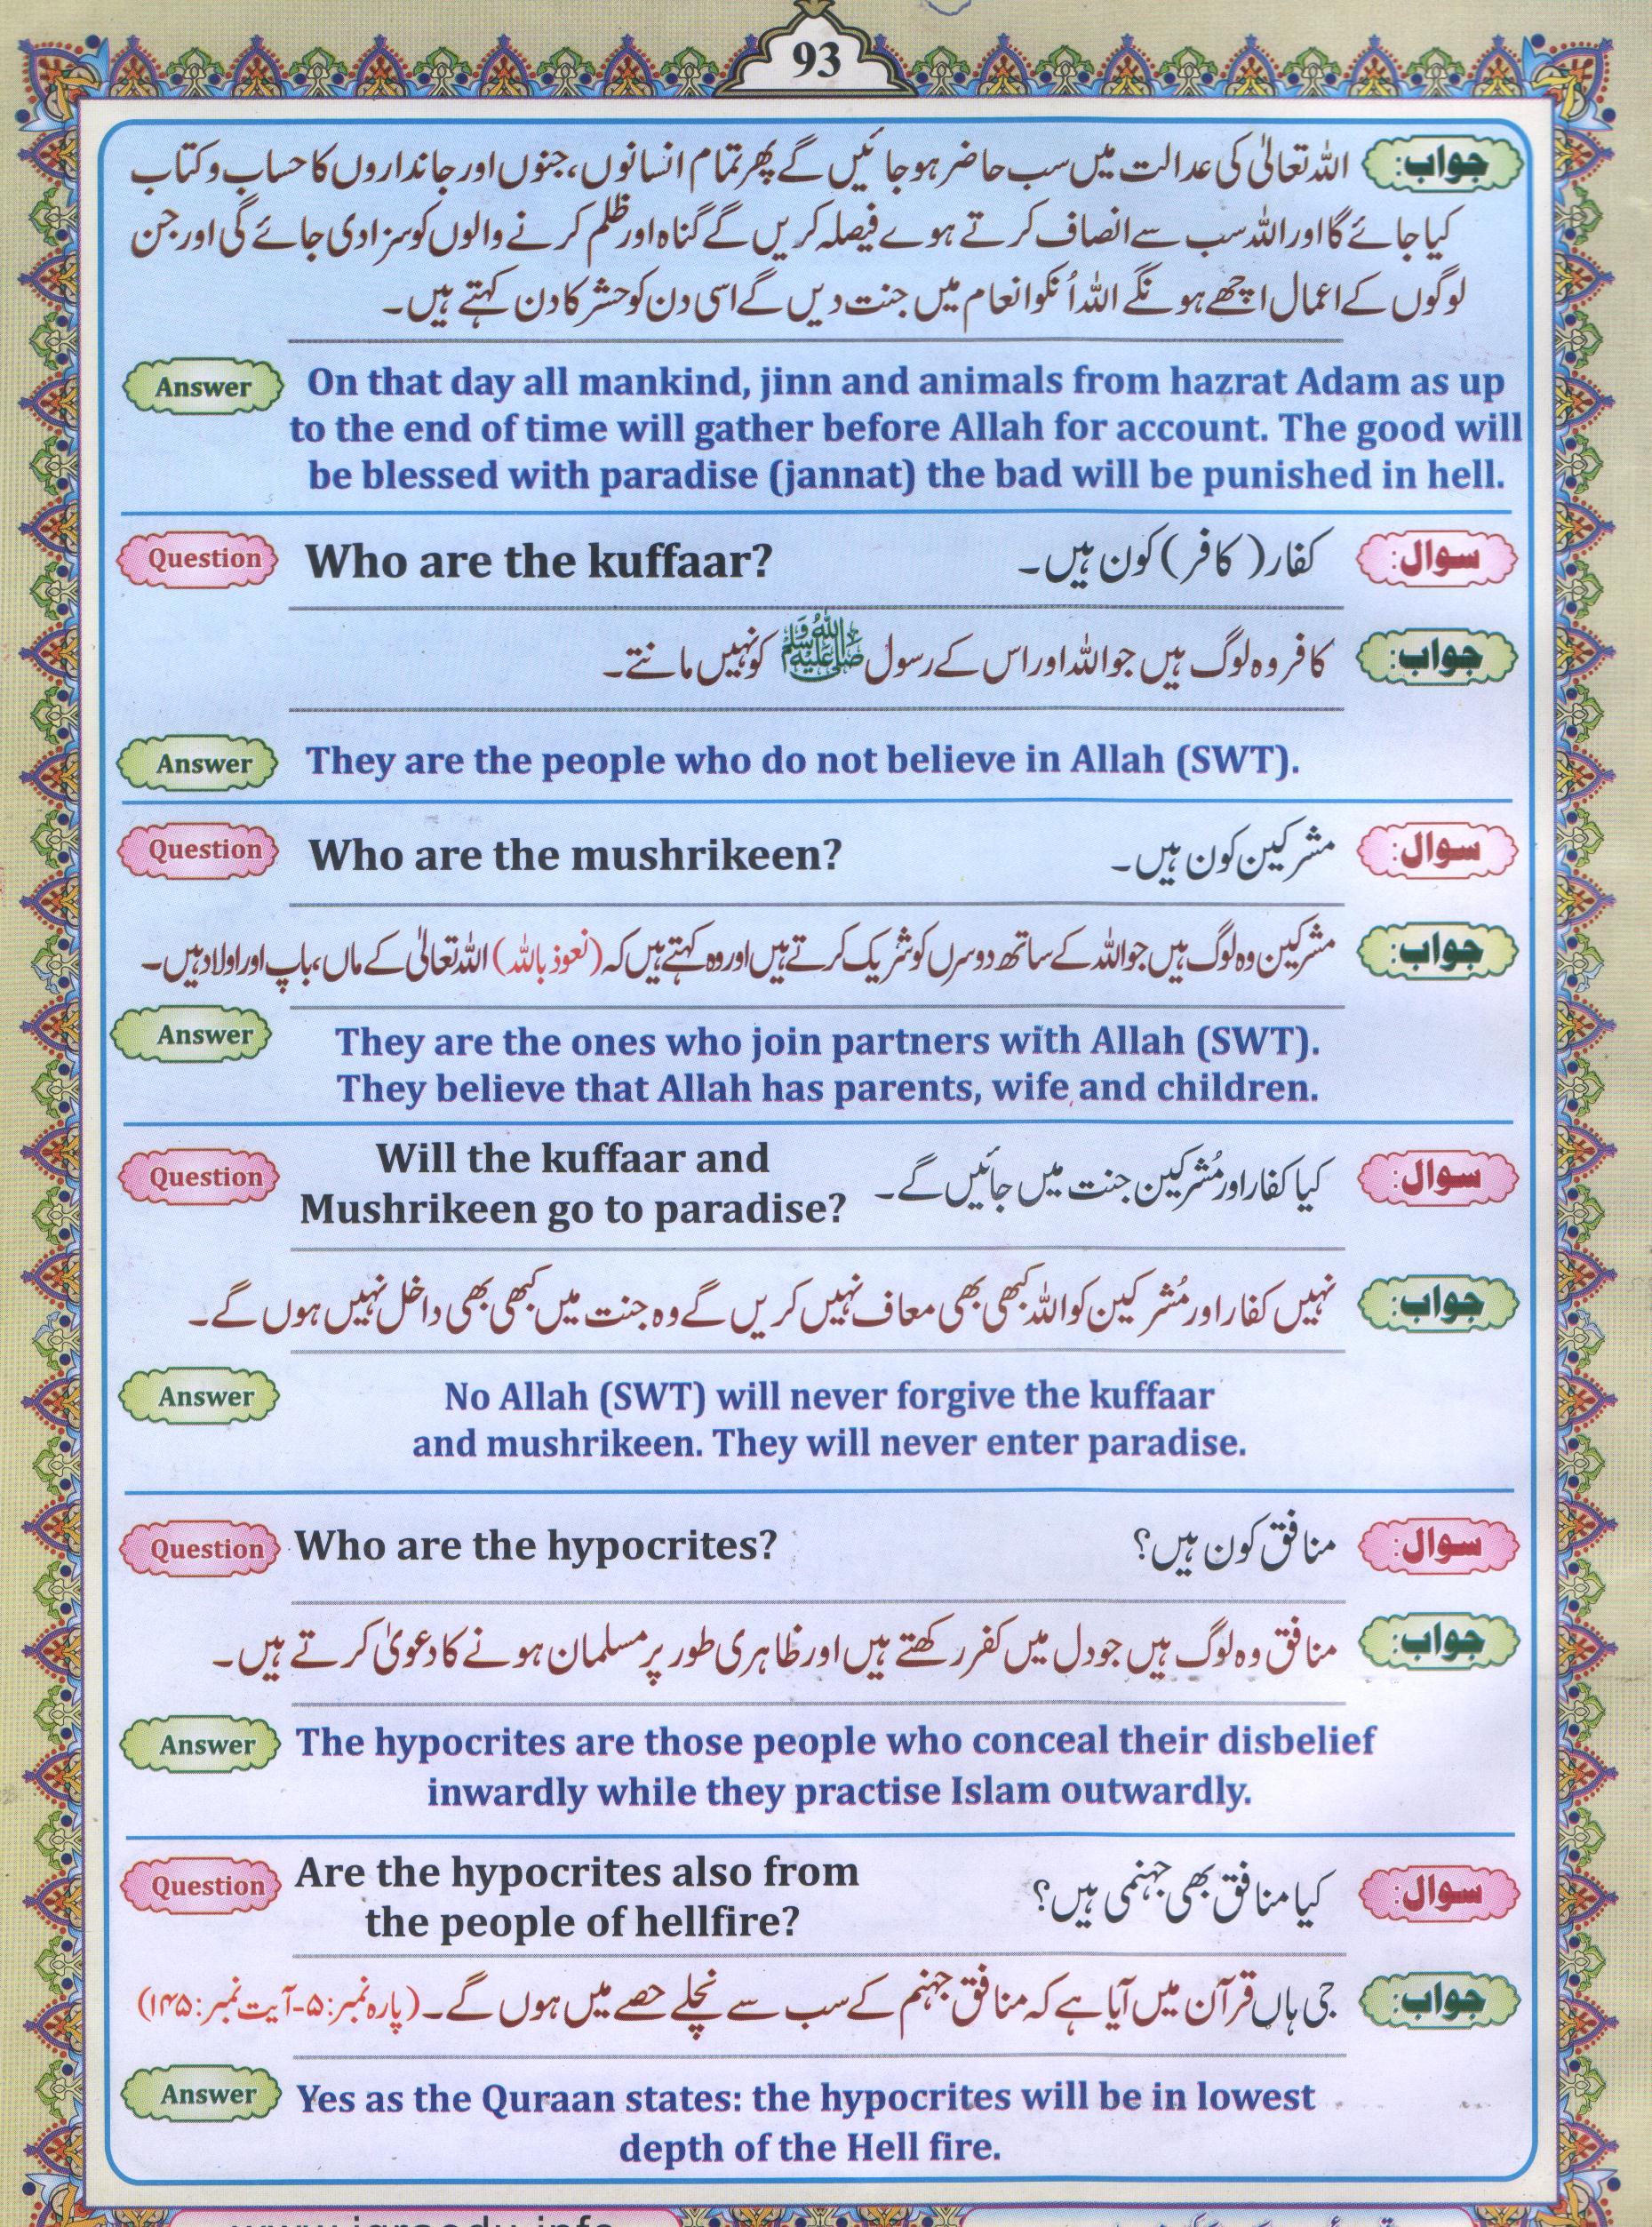 93
جواب: اللہ تعالیٰ کی عدالت میں سب حاضر ہو جائیں گے پھر تمام انسانوں، جنوں اور جانداروں کا حساب و کتاب
کیا جائے گا اور اللہ سب سے انصاف کرتے ہوے فیصلہ کریں گے گناہ اور ظلم کرنے والوں کو سزا دی جائے گی اور جن
لوگوں کے اعمال اچھے ہونگے اللہ اُنکو انعام میں جنت دیں گے اسی دن کو حشر کا دن کہتے ہیں۔
Answer On that day all mankind, jinn and animals from hazrat Adam as up
to the end of time will gather before Allah for account. The good will
be blessed with paradise (jannat) the bad will be punished in hell.
Question Who are the kuffaar?
سوال: کفار (کافر) کون ہیں۔
جواب: کافر وہ لوگ ہیں جو اللہ اور اس کے رسول ﷺ کو نہیں مانتے۔
Answer They are the people who do not believe in Allah (SWT).
Question Who are the mushrikeen?
سوال: مشرکین کون ہیں۔
جواب: مشرکین وہ لوگ ہیں جو اللہ کے ساتھ دوسرں کو شریک کرتے ہیں اور وہ کہتے ہیں کہ (نعوذ باللہ) اللہ تعالیٰ کے ماں، باپ اور اولاد ہیں۔
Answer They are the ones who join partners with Allah (SWT).
They believe that Allah has parents, wife and children.
Question Will the kuffaar and
Mushrikeen go to paradise?
سوال: کیا کفار اور مُشرکین جنت میں جائیں گے۔
جواب: نہیں کفار اور مُشرکین کو اللہ کبھی بھی معاف نہیں کریں گے وہ جنت میں کبھی بھی داخل نہیں ہوں گے۔
Answer No Allah (SWT) will never forgive the kuffaar
and mushrikeen. They will never enter paradise.
Question Who are the hypocrites?
سوال: منافق کون ہیں؟
جواب: منافق وہ لوگ ہیں جو دل میں کفر رکھتے ہیں اور ظاہری طور پر مسلمان ہونے کا دعویٰ کرتے ہیں۔
Answer The hypocrites are those people who conceal their disbelief
inwardly while they practise Islam outwardly.
Question Are the hypocrites also from
the people of hellfire?
سوال: کیا منافق بھی جہنمی ہیں؟
جواب: جی ہاں قرآن میں آیا ہے کہ منافق جہنم کے سب سے نچلے حصے میں ہوں گے۔ (پارہ نمبر:۵-آیت نمبر:۱۴۵)
Answer Yes as the Quraan states: the hypocrites will be in lowest
depth of the Hell fire.